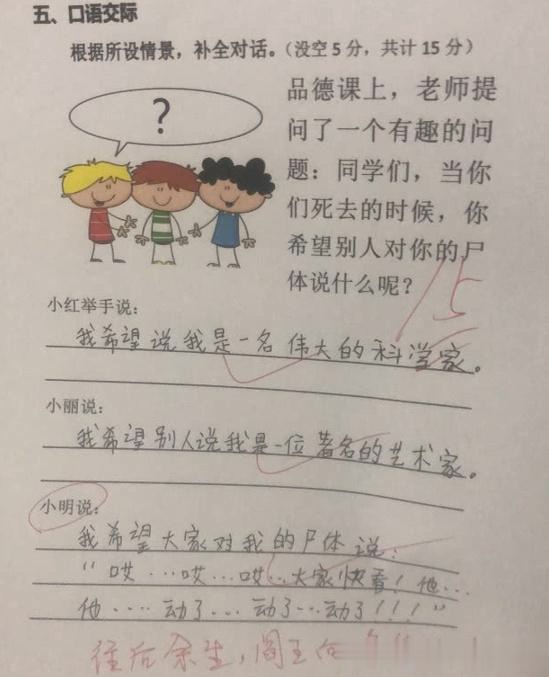 五、口语交际
根据所设情景，补全对话。（没空5分，共计15分）
?
品德课上，老师提
问了一个有趣的问
题：同学们，当你
们死去的时候，你
希望别人对你的尸
体说什么呢？
15
小红举手说：
我希望说我是一名伟大的科学家。
小丽说：
我希望别人说我是一位著名的艺术家。
小明说：
我希望大家对我的尸体说：
“哎…哎…哎…大家快看！他…
他……动了…动了…动了！！！”
往后余生，阎王